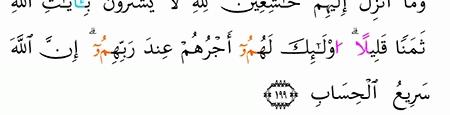 وَمَا أُنزِلَ إِلَيْهِمْ خَٰشِعِينَ لِلَّهِ لَا يَشْتَرُونَ بِـَٔايَٰتِ اللَّهِ
ثَمَنًا قَلِيلًا ۗ اوْلَٰٓئِكَ لَهُمُۥٓ أَجْرُهُمْ عِندَ رَبِّهِمُۥٓ ۗ إِنَّ اَللَّهَ
سَرِيعُ اُلْحِسَابِ ١٩٩